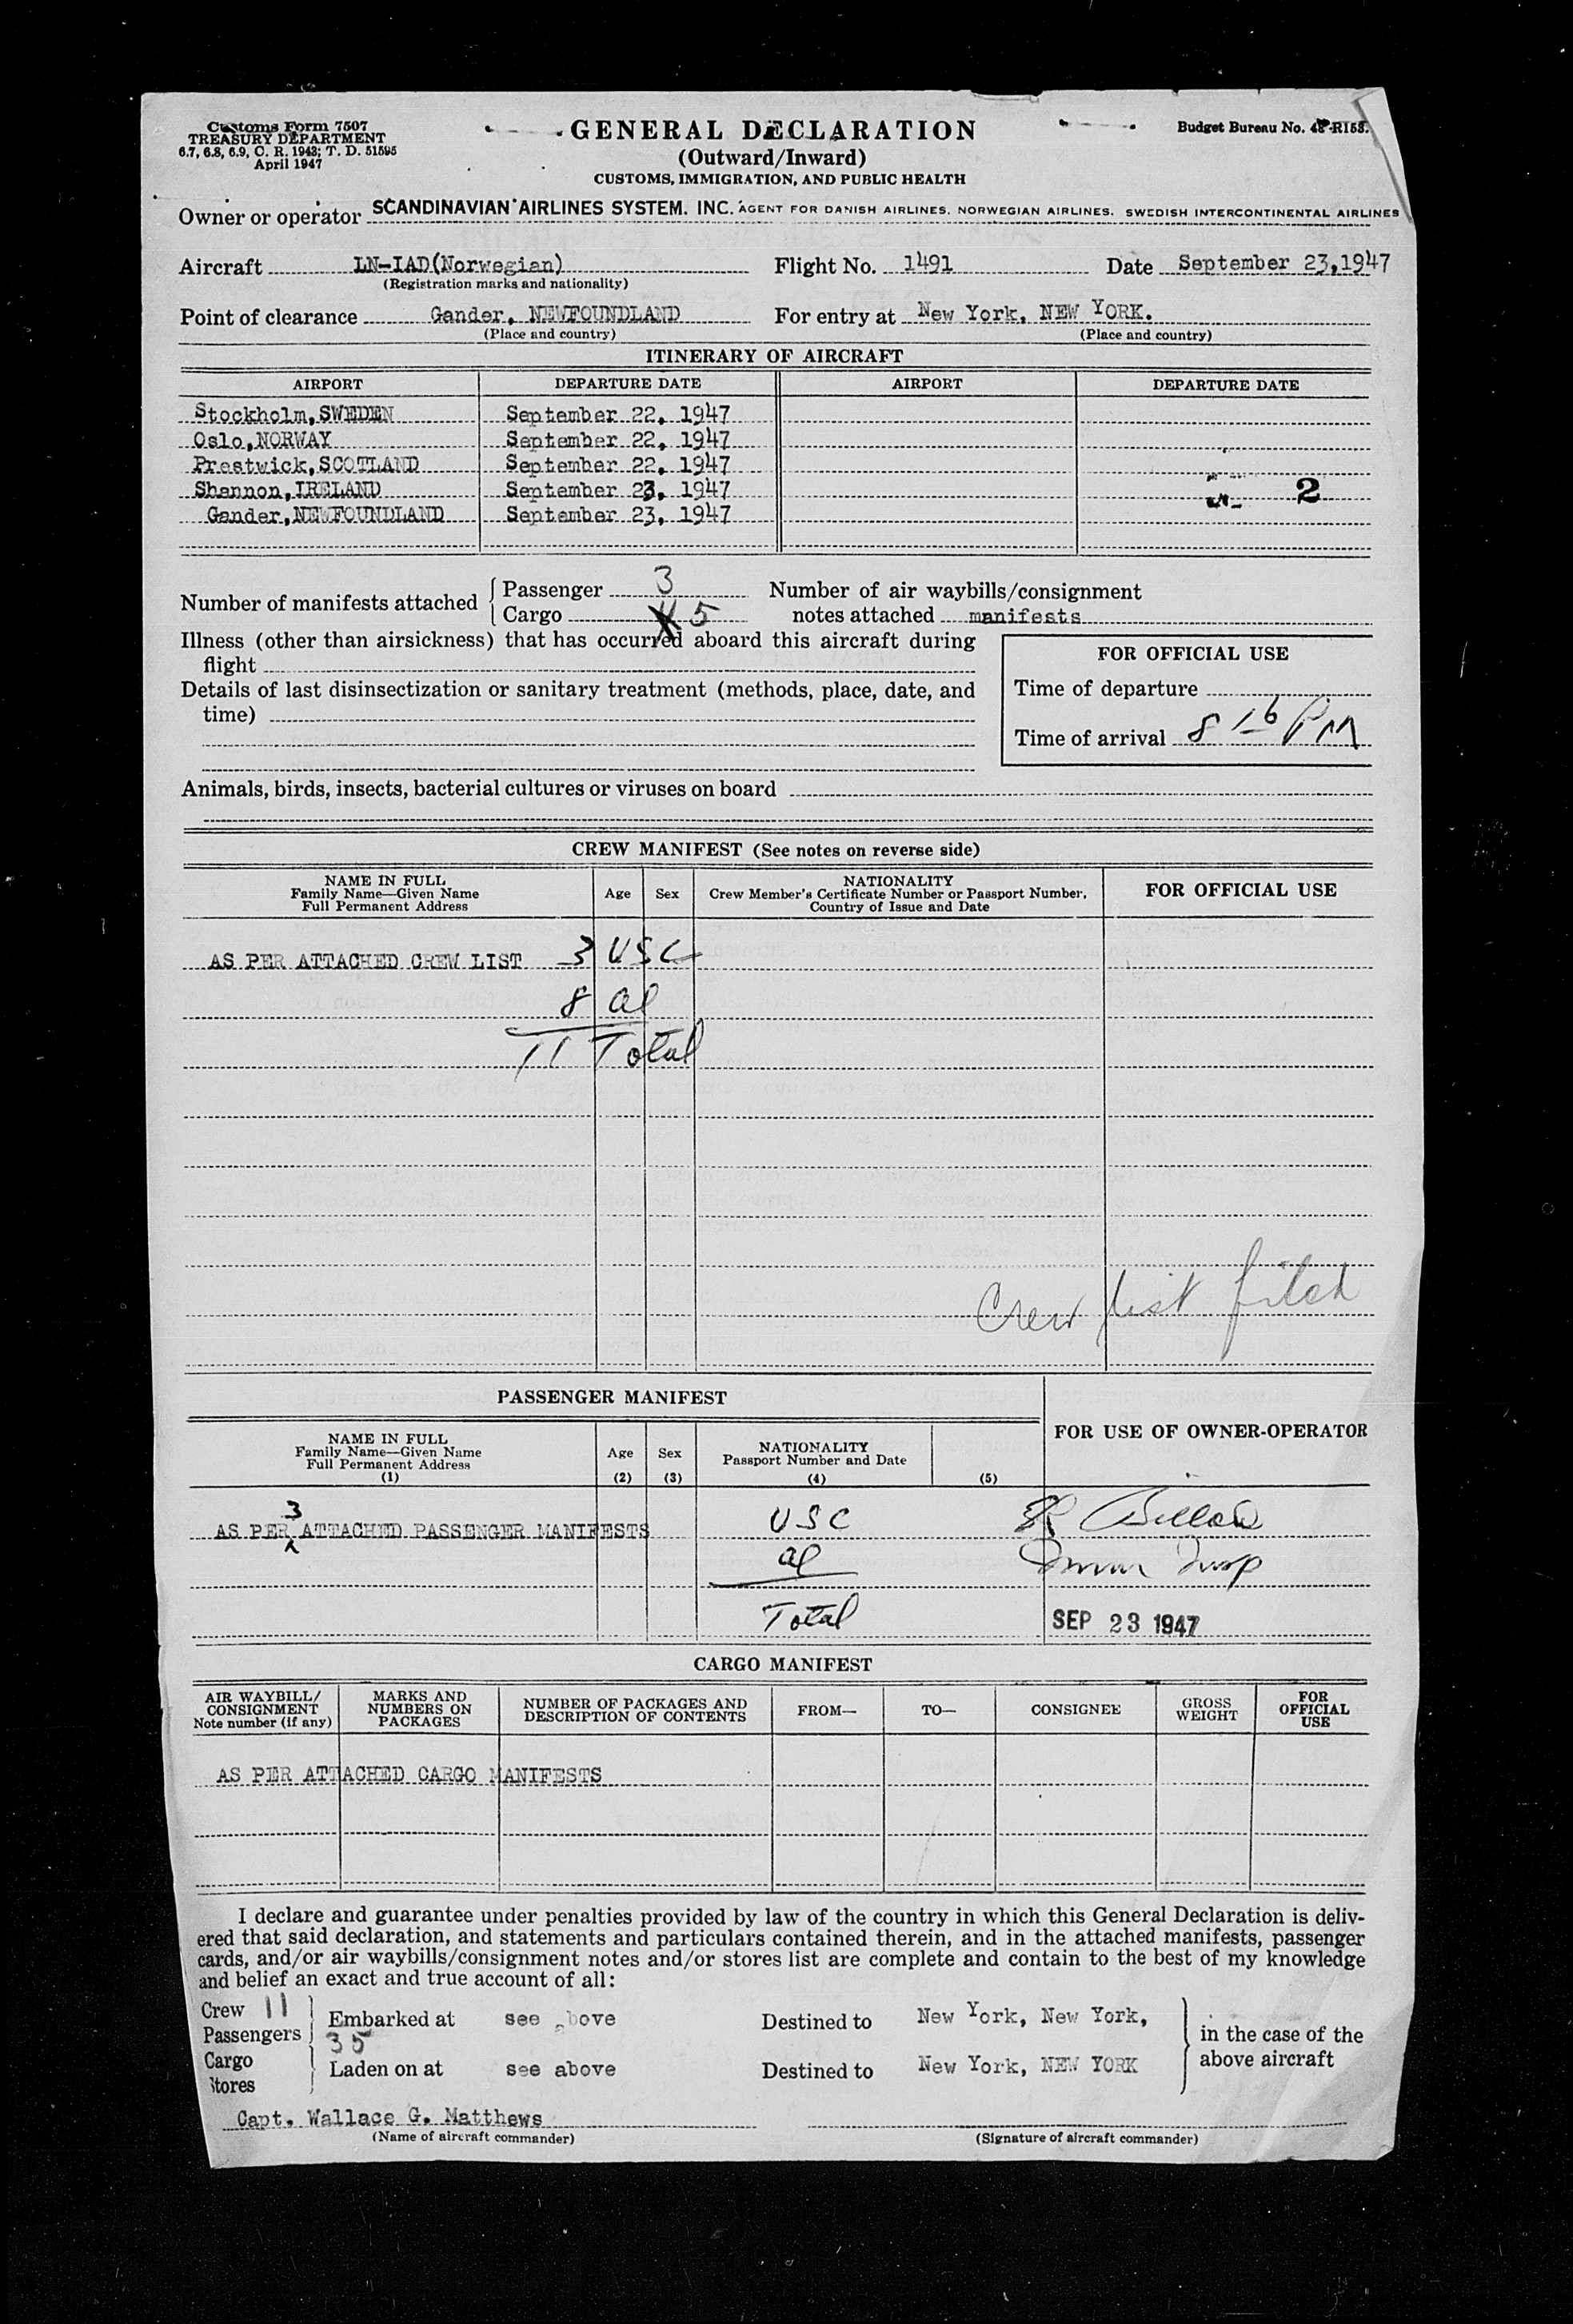 Customs Form 7507
TREASURY DEPARTMENT
6.7, 6.8, 6.9, C. R. 1943; T. D. 51595
April 1947
GENERAL DECLARATION
(Outward/Inward)
CUSTOMS, IMMIGRATION, AND PUBLIC HEALTH
Budget Bureau No. R158.
Owner or operator SCANDINAVIAN AIRLINES SYSTEM. INC. AGENT FOR DANISH AIRLINES. NORWEGIAN AIRLINES. SWEDISH INTERCONTINENTAL AIRLINES
Aircraft LN-IAD(Norwegian) Flight No. 1491 Date September 23,1947
(Registration marks and nationality)
Point of clearance Gander, NEWFOUNDLAND For entry at New York, NEW YORK.
(Place and country) (Place and country)
ITINERARY OF AIRCRAFT
AIRPORT DEPARTURE DATE AIRPORT DEPARTURE DATE
Stockholm,SWEDEN September 22, 1947
Oslo,NORWAY September 22, 1947
Prestwick,SCOTLAND September 22, 1947
Shannon,IRELAND September 23, 1947 2
Gander,NEWFOUNDLAND September 23, 1947
Number of manifests attached
Passenger 3
Cargo 5
Number of air waybills/consignment
notes attached manifests
Illness (other than airsickness) that has occurred aboard this aircraft during
flight
Details of last disinsectization or sanitary treatment (methods, place, date, and
time)
FOR OFFICIAL USE
Time of departure
Time of arrival 8 16 PM
Animals, birds, insects, bacterial cultures or viruses on board
CREW MANIFEST (See notes on reverse side)
NAME IN FULL
Family Name—Given Name
Full Permanent Address
Age
Sex
NATIONALITY
Crew Member's Certificate Number or Passport Number,
Country of Issue and Date
FOR OFFICIAL USE
AS PER ATTACHED CREW LIST 3 USC
8 al
11 Total
Crew list filed
PASSENGER MANIFEST
FOR USE OF OWNER-OPERATOR
NAME IN FULL
Family Name—Given Name
Full Permanent Address
(1)
Age
(2)
Sex
(3)
NATIONALITY
Passport Number and Date
(4)
(5)
3
AS PER ATTACHED PASSENGER MANIFESTS USC
al
Total
SEP 23 1947
CARGO MANIFEST
AIR WAYBILL/
CONSIGNMENT
Note number (if any)
MARKS AND
NUMBERS ON
PACKAGES
NUMBER OF PACKAGES AND
DESCRIPTION OF CONTENTS
FROM—
TO—
CONSIGNEE
GROSS
WEIGHT
FOR
OFFICIAL
USE
AS PER ATTACHED CARGO MANIFESTS
I declare and guarantee under penalties provided by law of the country in which this General Declaration is deliv-
ered that said declaration, and statements and particulars contained therein, and in the attached manifests, passenger
cards, and/or air waybills/consignment notes and/or stores list are complete and contain to the best of my knowledge
and belief an exact and true account of all:
Crew 11
Passengers 35
Embarked at see above Destined to New York, New York,
Cargo
Stores
Laden on at see above Destined to New York, NEW YORK
in the case of the
above aircraft
Capt. Wallace G. Matthews
(Name of aircraft commander) (Signature of aircraft commander)